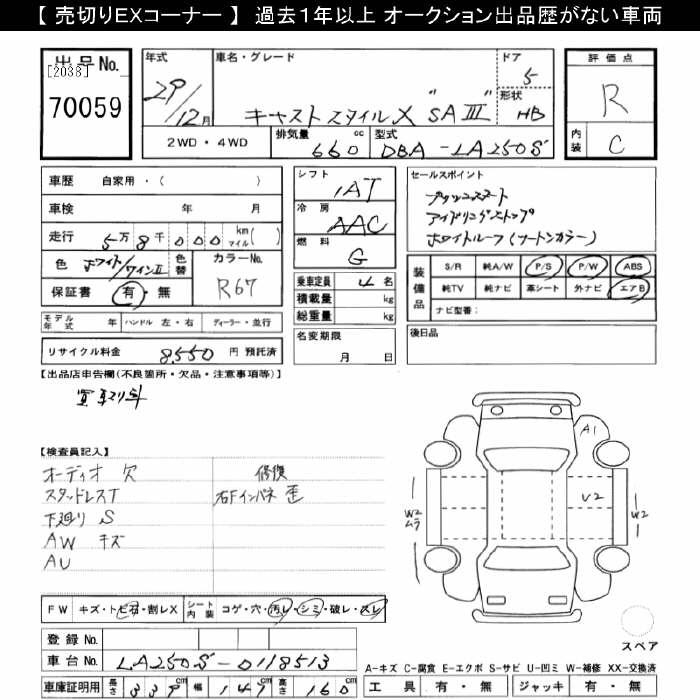 【 売切りEXコーナー 】 過去1年以上 オークション出品歴がない車両
出品No. [2038] 70059
年式 29/12月
車名・グレード キャスト スタイルX "SAⅢ"
ドア 5
形状 HB
2WD・4WD
排気量 660 cc
型式 DBA-LA250S
評価点 R
内装 C
車歴 自家用・( )
車検 年 月
走行 5万8千000 km マイル( )
色 ホワイト/ワインⅡ 色替
カラーNo. R67
保証書 有・無
モデル年式 年 ハンドル 左・右 ディーラー・並行
リサイクル料金 8550 円 預託済
シフト IAT
冷房 AAC
燃料 G
乗車定員 4 名
積載量 kg
総重量 kg
名変期限 月 日
セールスポイント
プッシュスタート
アイドリングストップ
ホワイトルーフ(ツートンカラー)
装備品 S/R 純A/W P/S P/W ABS
純TV 純ナビ 革シート 外ナビ エアB
ナビ型番:
後日品
【出品店申告欄(不良箇所・欠品・注意事項等)】
買取車
【検査員記入】
オーディオ 欠
スタッドレスT
下廻り S
AW キズ
AU
修復
右Fインパネ 歪
FW キズ・トビ石・割レX シート内装 コゲ・穴・汚レ・シミ・破レ・スレ
登録 No.
車台 No. LA250S-0118513
車庫証明用 長さ 339 cm 幅 147 cm 高さ 160 cm
A1
V2
W2 ムラ
W2
スペア
A-キズ C-腐食 E-エクボ S-サビ U-凹ミ W-補修 XX-交換済
工具 有・無 ジャッキ 有・無